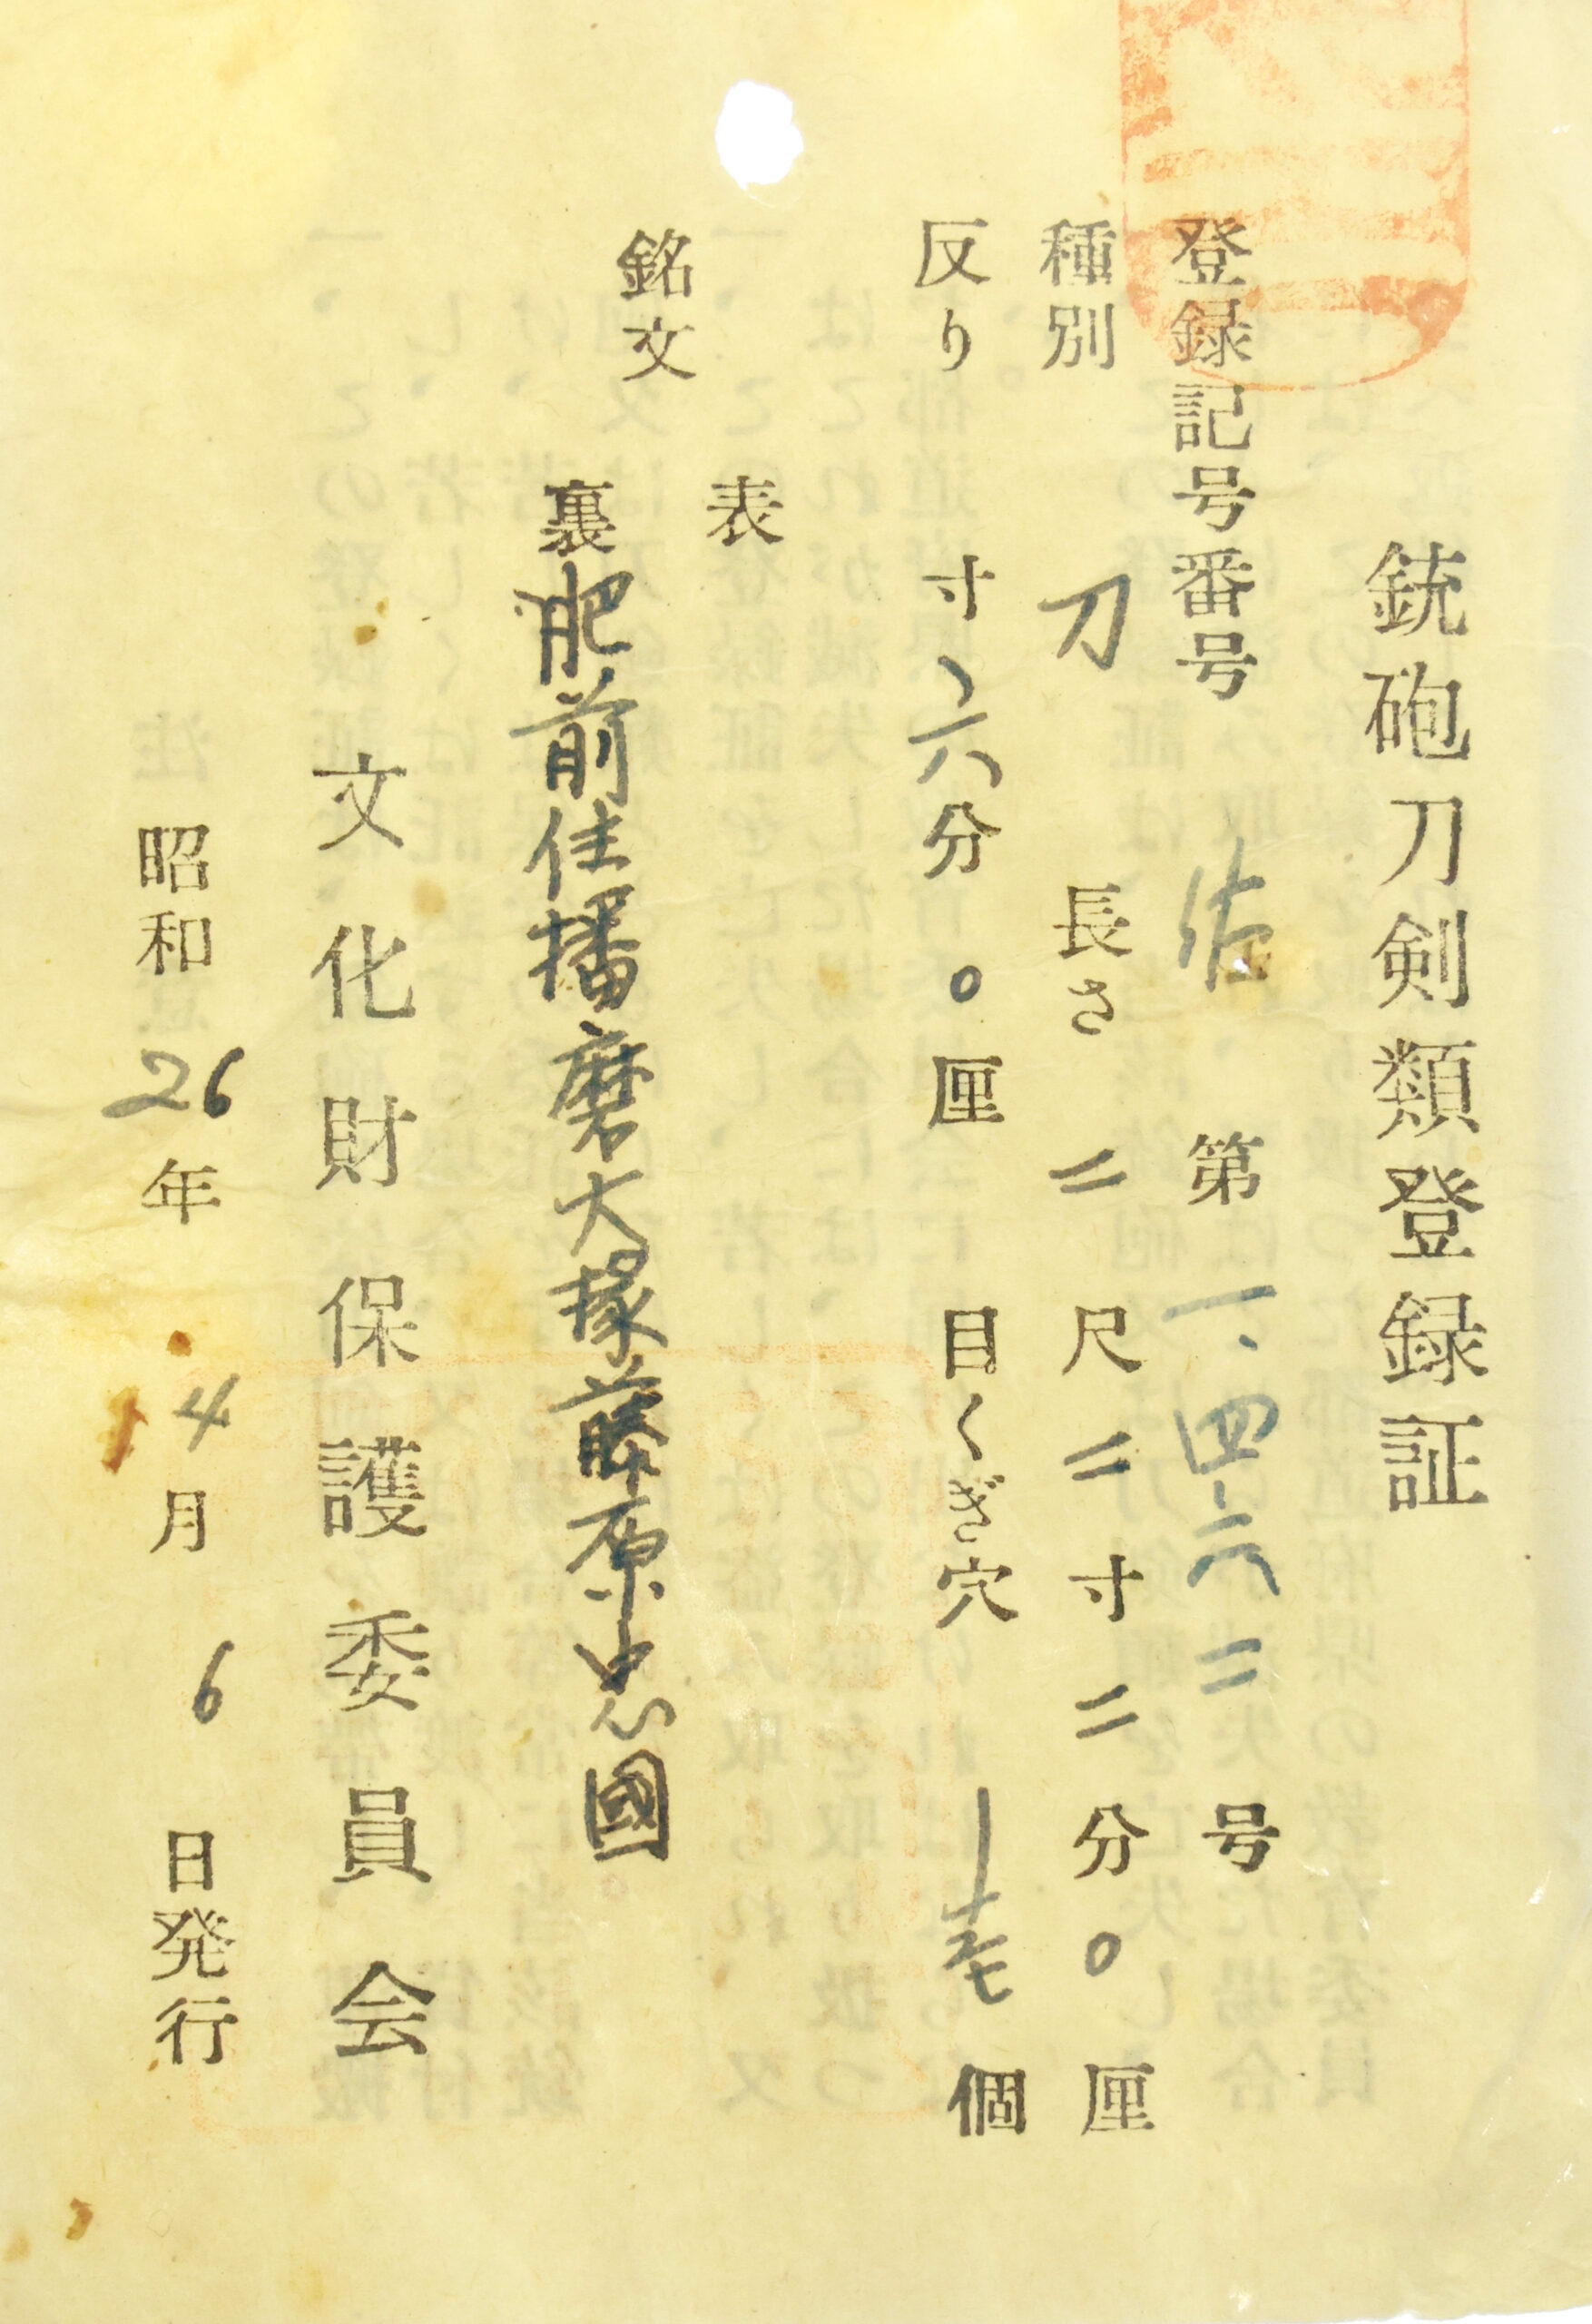 銃砲刀剣類登録証
登録記号番号 佐 第一、四六二号
種別 刀 長さ 二尺二寸二分〇厘
反り 寸、六分〇厘 目くぎ穴 壱個
銘文
表
裏 肥前住播磨大掾藤原忠國
文化財保護委員会
昭和26年4月6日発行